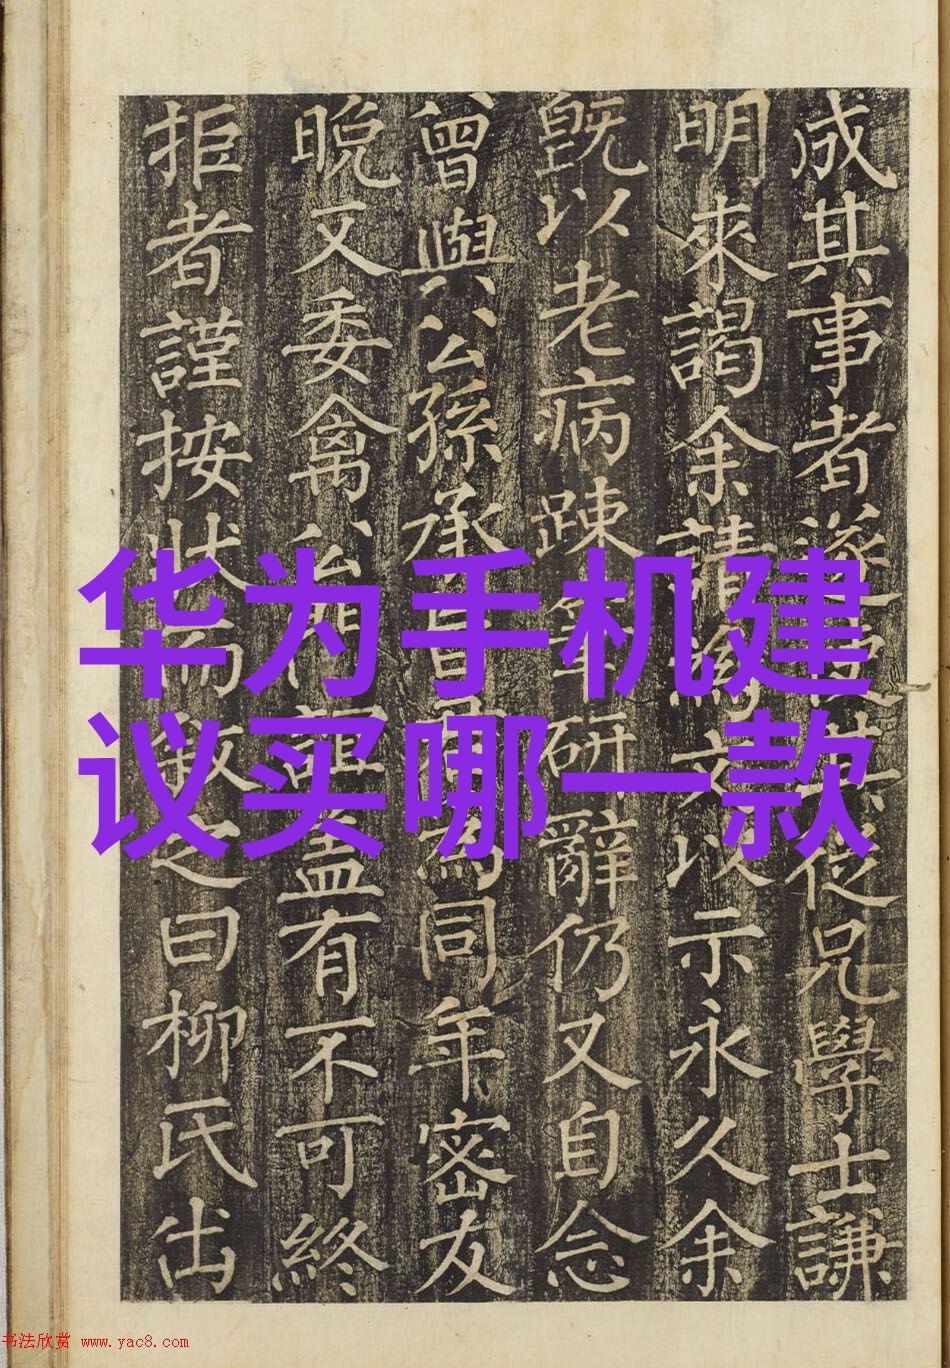 成其事者
從兄學士謙
明來謁余請
以示永久余
旣以老病踈
研辭仍又自念
曾與公孫承
同年密友
晩又委禽
盖有不可終
拒者謹按狀
之曰柳氏出
华为手机建
议买哪一款
书法欣赏 www.yac8.com